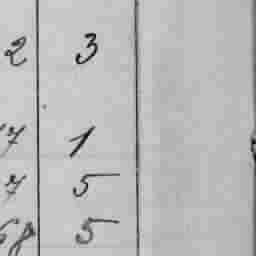 2 3
7 1
7 5
68 5